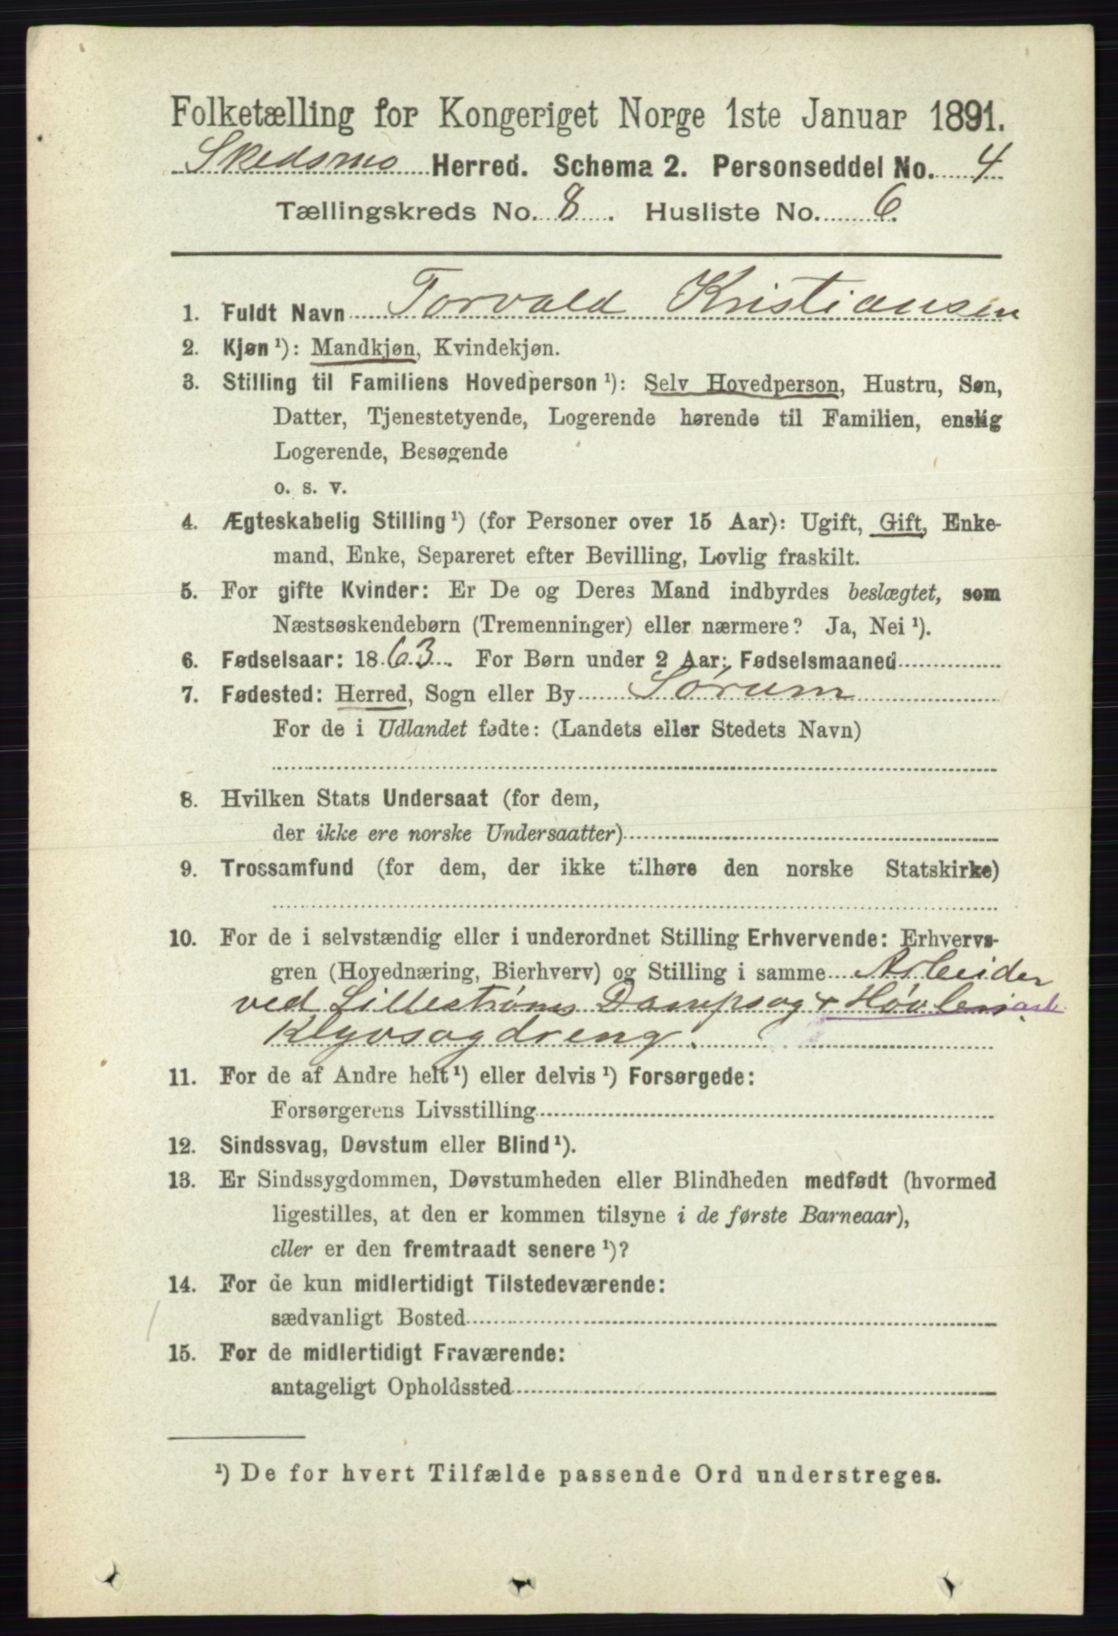 Folketælling for Kongeriget Norge 1ste Januar 1891.
Skedsmo Herred. Schema 2. Personseddel No. 4
Tællingskreds No. 8. Husliste No. 6.
1. Fuldt Navn Torvald Kristiansen
2. Kjøn¹): Mandkjøn, Kvindekjøn.
3. Stilling til Familiens Hovedperson¹): Selv Hovedperson, Hustru, Søn,
Datter, Tjenestetyende, Logerende hørende til Familien, enslig
Logerende, Besøgende
o. s. v.
4. Ægteskabelig Stilling¹) (for Personer over 15 Aar): Ugift, Gift, Enke-
mand, Enke, Separeret efter Bevilling, Lovlig fraskilt.
5. For gifte Kvinder: Er De og Deres Mand indbyrdes beslægtet, som
Næstsøskendebørn (Tremenninger) eller nærmere? Ja, Nei¹).
6. Fødselsaar: 1863. For Børn under 2 Aar: Fødselsmaaned
7. Fødested: Herred, Sogn eller By Sørum
For de i Udlandet fødte: (Landets eller Stedets Navn)
8. Hvilken Stats Undersaat (for dem,
der ikke ere norske Undersaatter)
9. Trossamfund (for dem, der ikke tilhøre den norske Statskirke)
10. For de i selvstændig eller i underordnet Stilling Erhvervende: Erhvervs-
gren (Hovednæring, Bierhverv) og Stilling i samme Arbeider
ved Lillestrøms Dampsag & Høvleri arb
Kløvsagdreng.
11. For de af Andre helt¹) eller delvis¹) Forsørgede:
Forsørgerens Livsstilling
12. Sindssvag, Døvstum eller Blind¹).
13. Er Sindssygdommen, Døvstumheden eller Blindheden medfødt (hvormed
ligestilles, at den er kommen tilsyne i de første Barneaar),
eller er den fremtraadt senere¹)?
14. For de kun midlertidigt Tilstedeværende:
sædvanligt Bosted
15. For de midlertidigt Fraværende:
antageligt Opholdssted
¹) De for hvert Tilfælde passende Ord understreges.